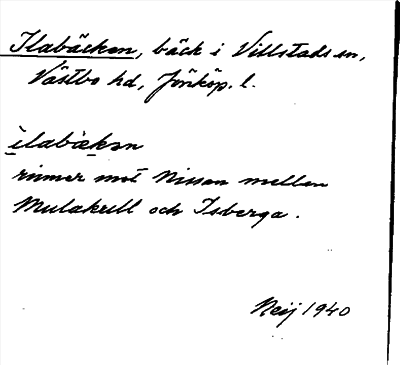 Ilabäcken, bäck i Villstads sn,
Västbo hd, Jönköp. l.
ìlabäkən
rinner mot Nissan mellan
Mulakull och Isberga.
Neij 1940